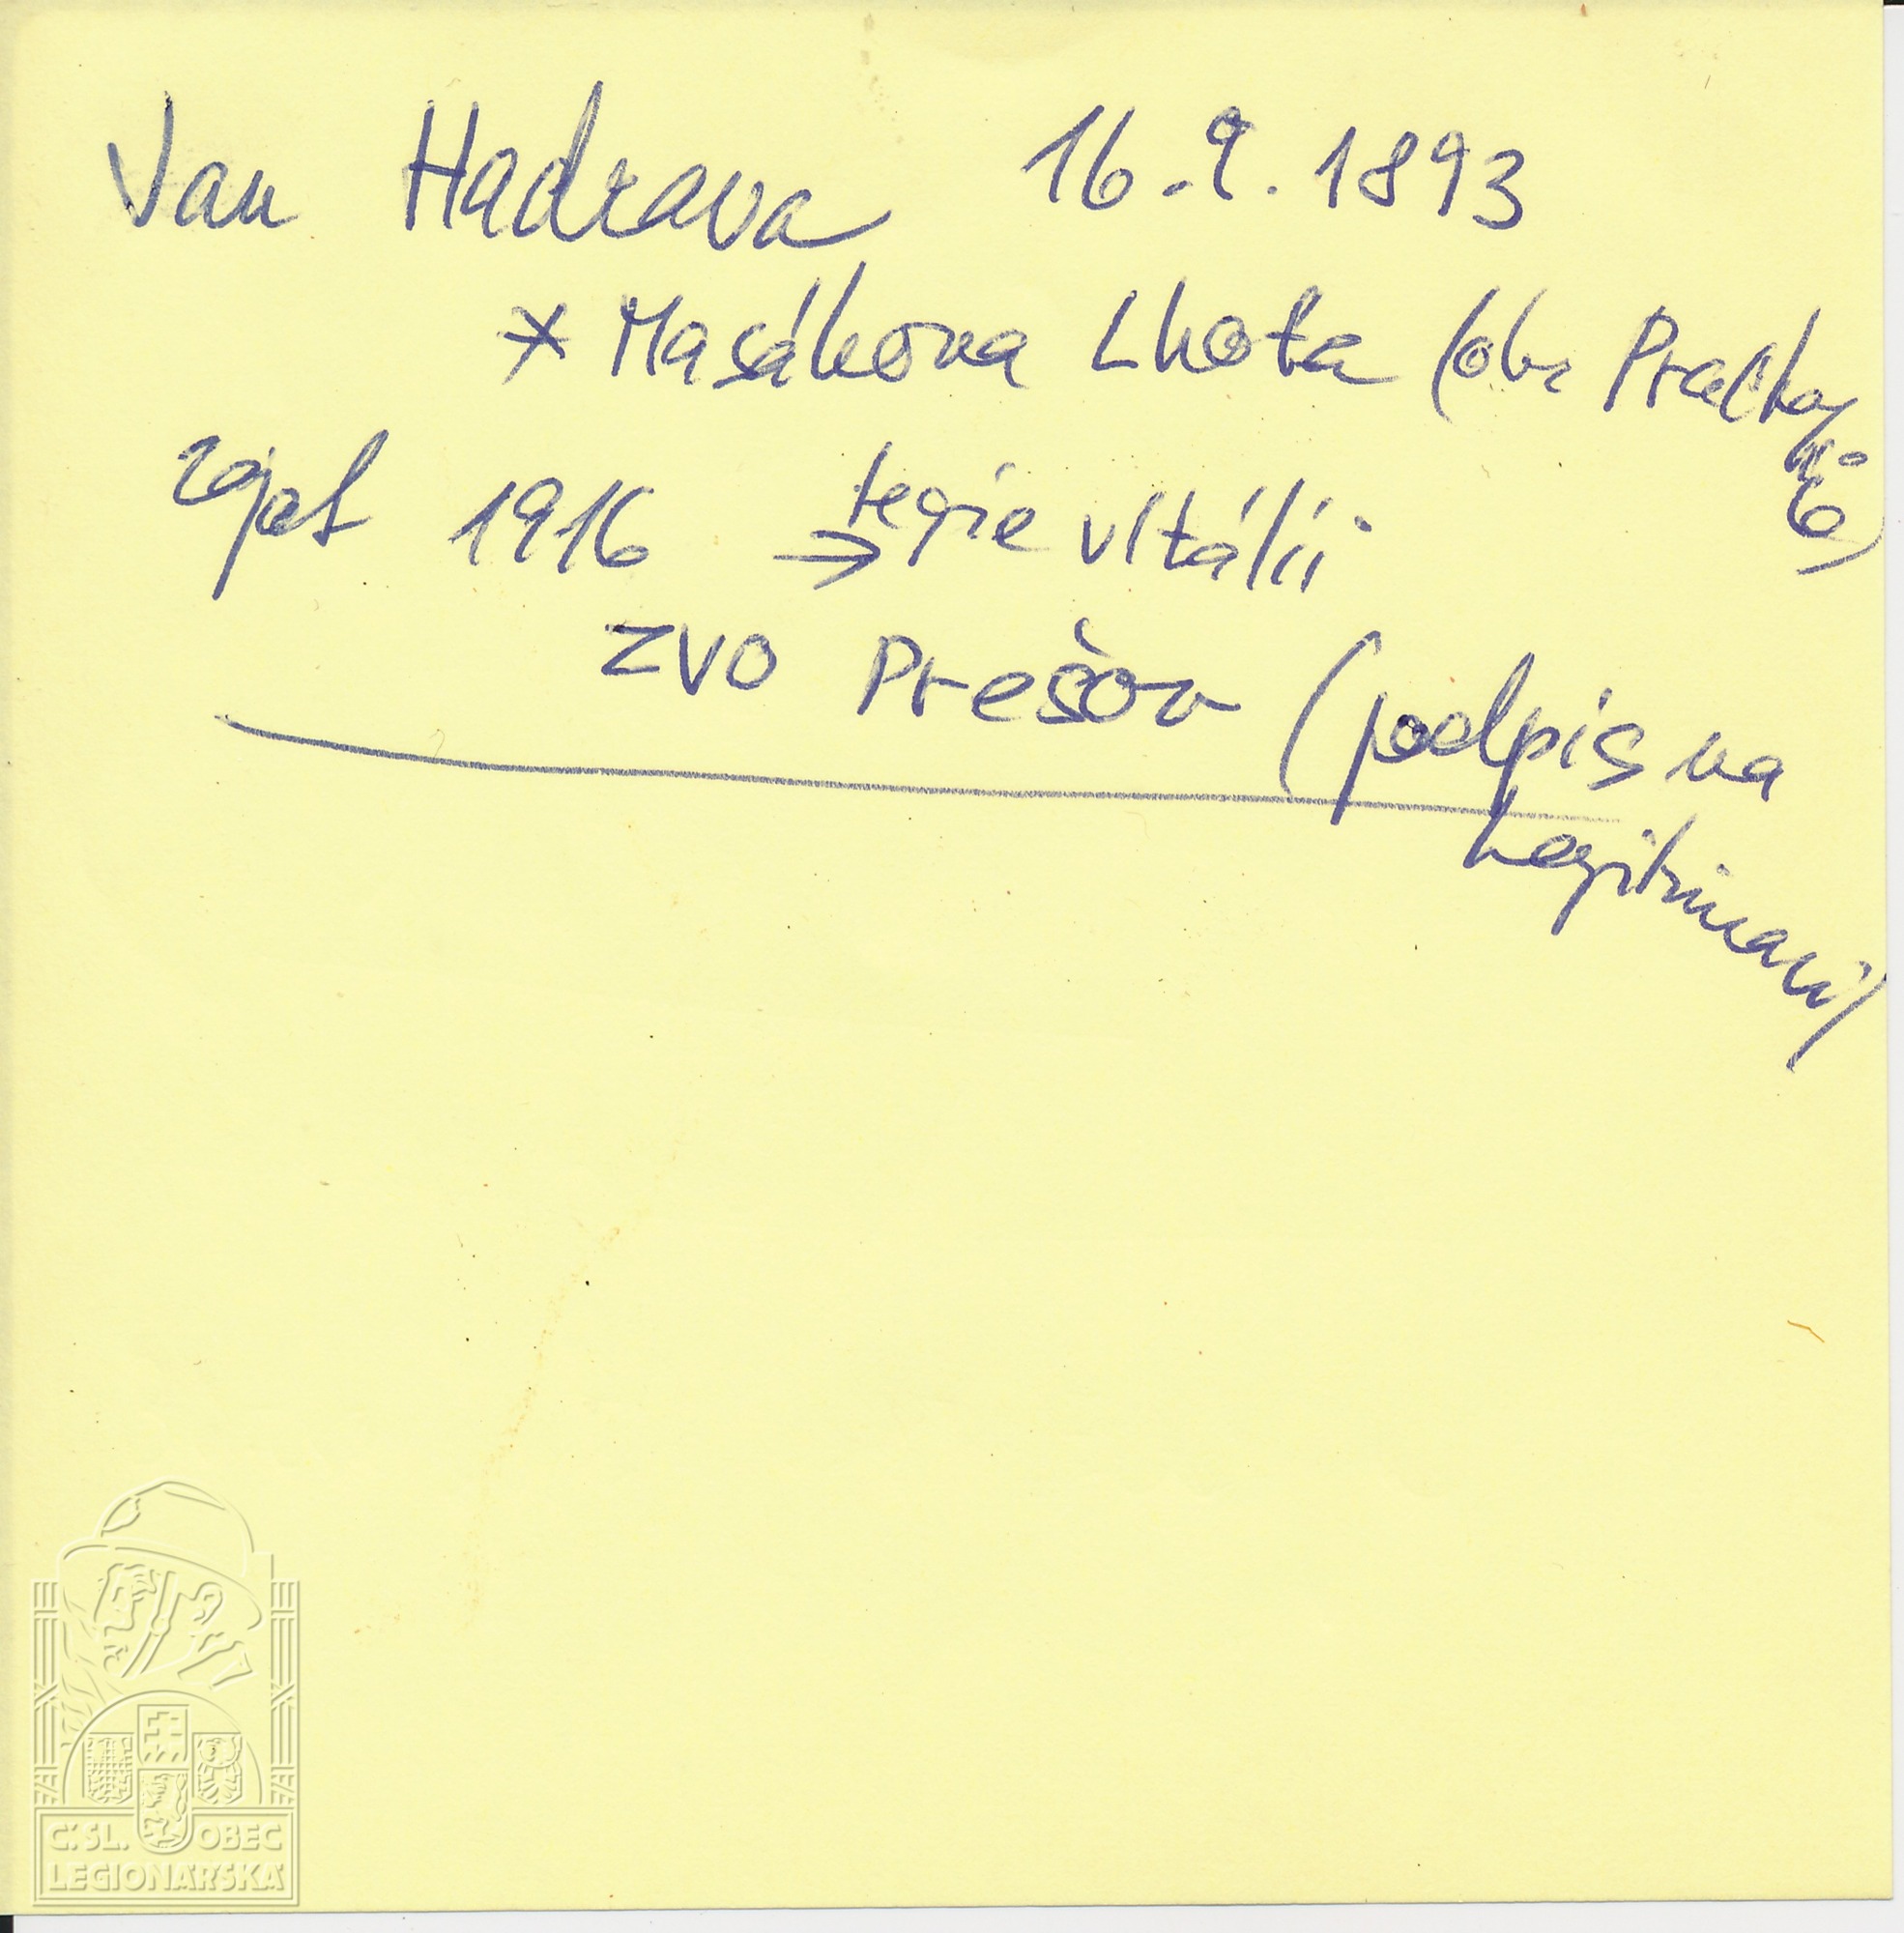 Jan Hadrava 16.9.1893
* Masákova Lhota (okr Pracha
tice)
zajat 1916 → legie v Itálii
ZVO Prešov (podpis na
Legitimaci)
Č.SL. OBEC
LEGIONÁŘSKÁ